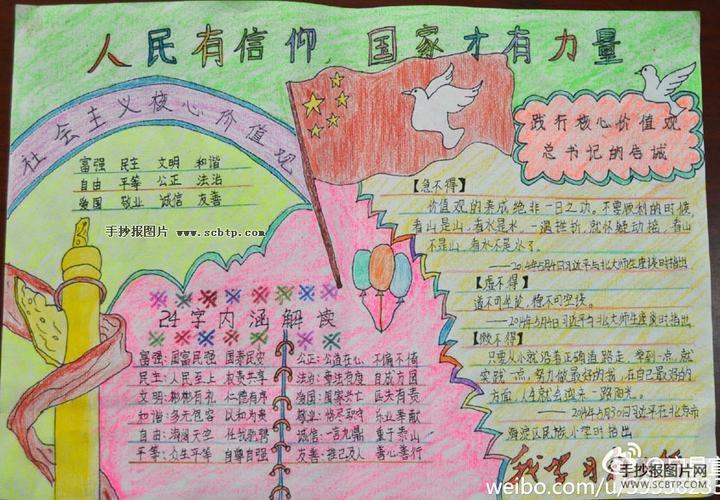 人民有信仰 国家才有力量
社会主义核心价值观
富强 民主 文明 和谐
自由 平等 公正 法治
爱国 敬业 诚信 友善
手抄报图片
www.scbtp.com
践行核心价值观
总书记的告诫
【急不得】
价值观的养成绝非一日之功。不要顺利的时候
看山是山,看水是水,一遇挫折,就怀疑动摇,看山
不是山,看水不是水了。
——2014年5月4日习近平与北大师生座谈时指出
【虚不得】
道不可坐论,德不可空谈。
——2014年5月4日习近平与北大师生座谈时指出
【微不得】
只要从小就沿着正确道路走,学到一点就
实践一点,努力做最好的我,在自己最好的
方面,人生就会迎来一路阳光。
——2014年5月30日习近平在北京市
海淀区民族小学时指出
24字内涵解读
富强:国富民强 国泰民安
民主:人民至上
文明:彬彬有礼 仁德有序
和谐:多元包容 以和为贵
自由:海阔天空 任我驰骋
平等:众生平等 自尊自强
公正:公道在心 不偏不倚
法治: 自成方圆
爱国:国家兴亡 匹夫有责
敬业:恪尽职守 乐业奉献
诚信:一言九鼎 重于泰山
友善:推己及人 善心善行
我学习
手抄报图片网
WWW.SCBTP.COM
weibo.com/u/